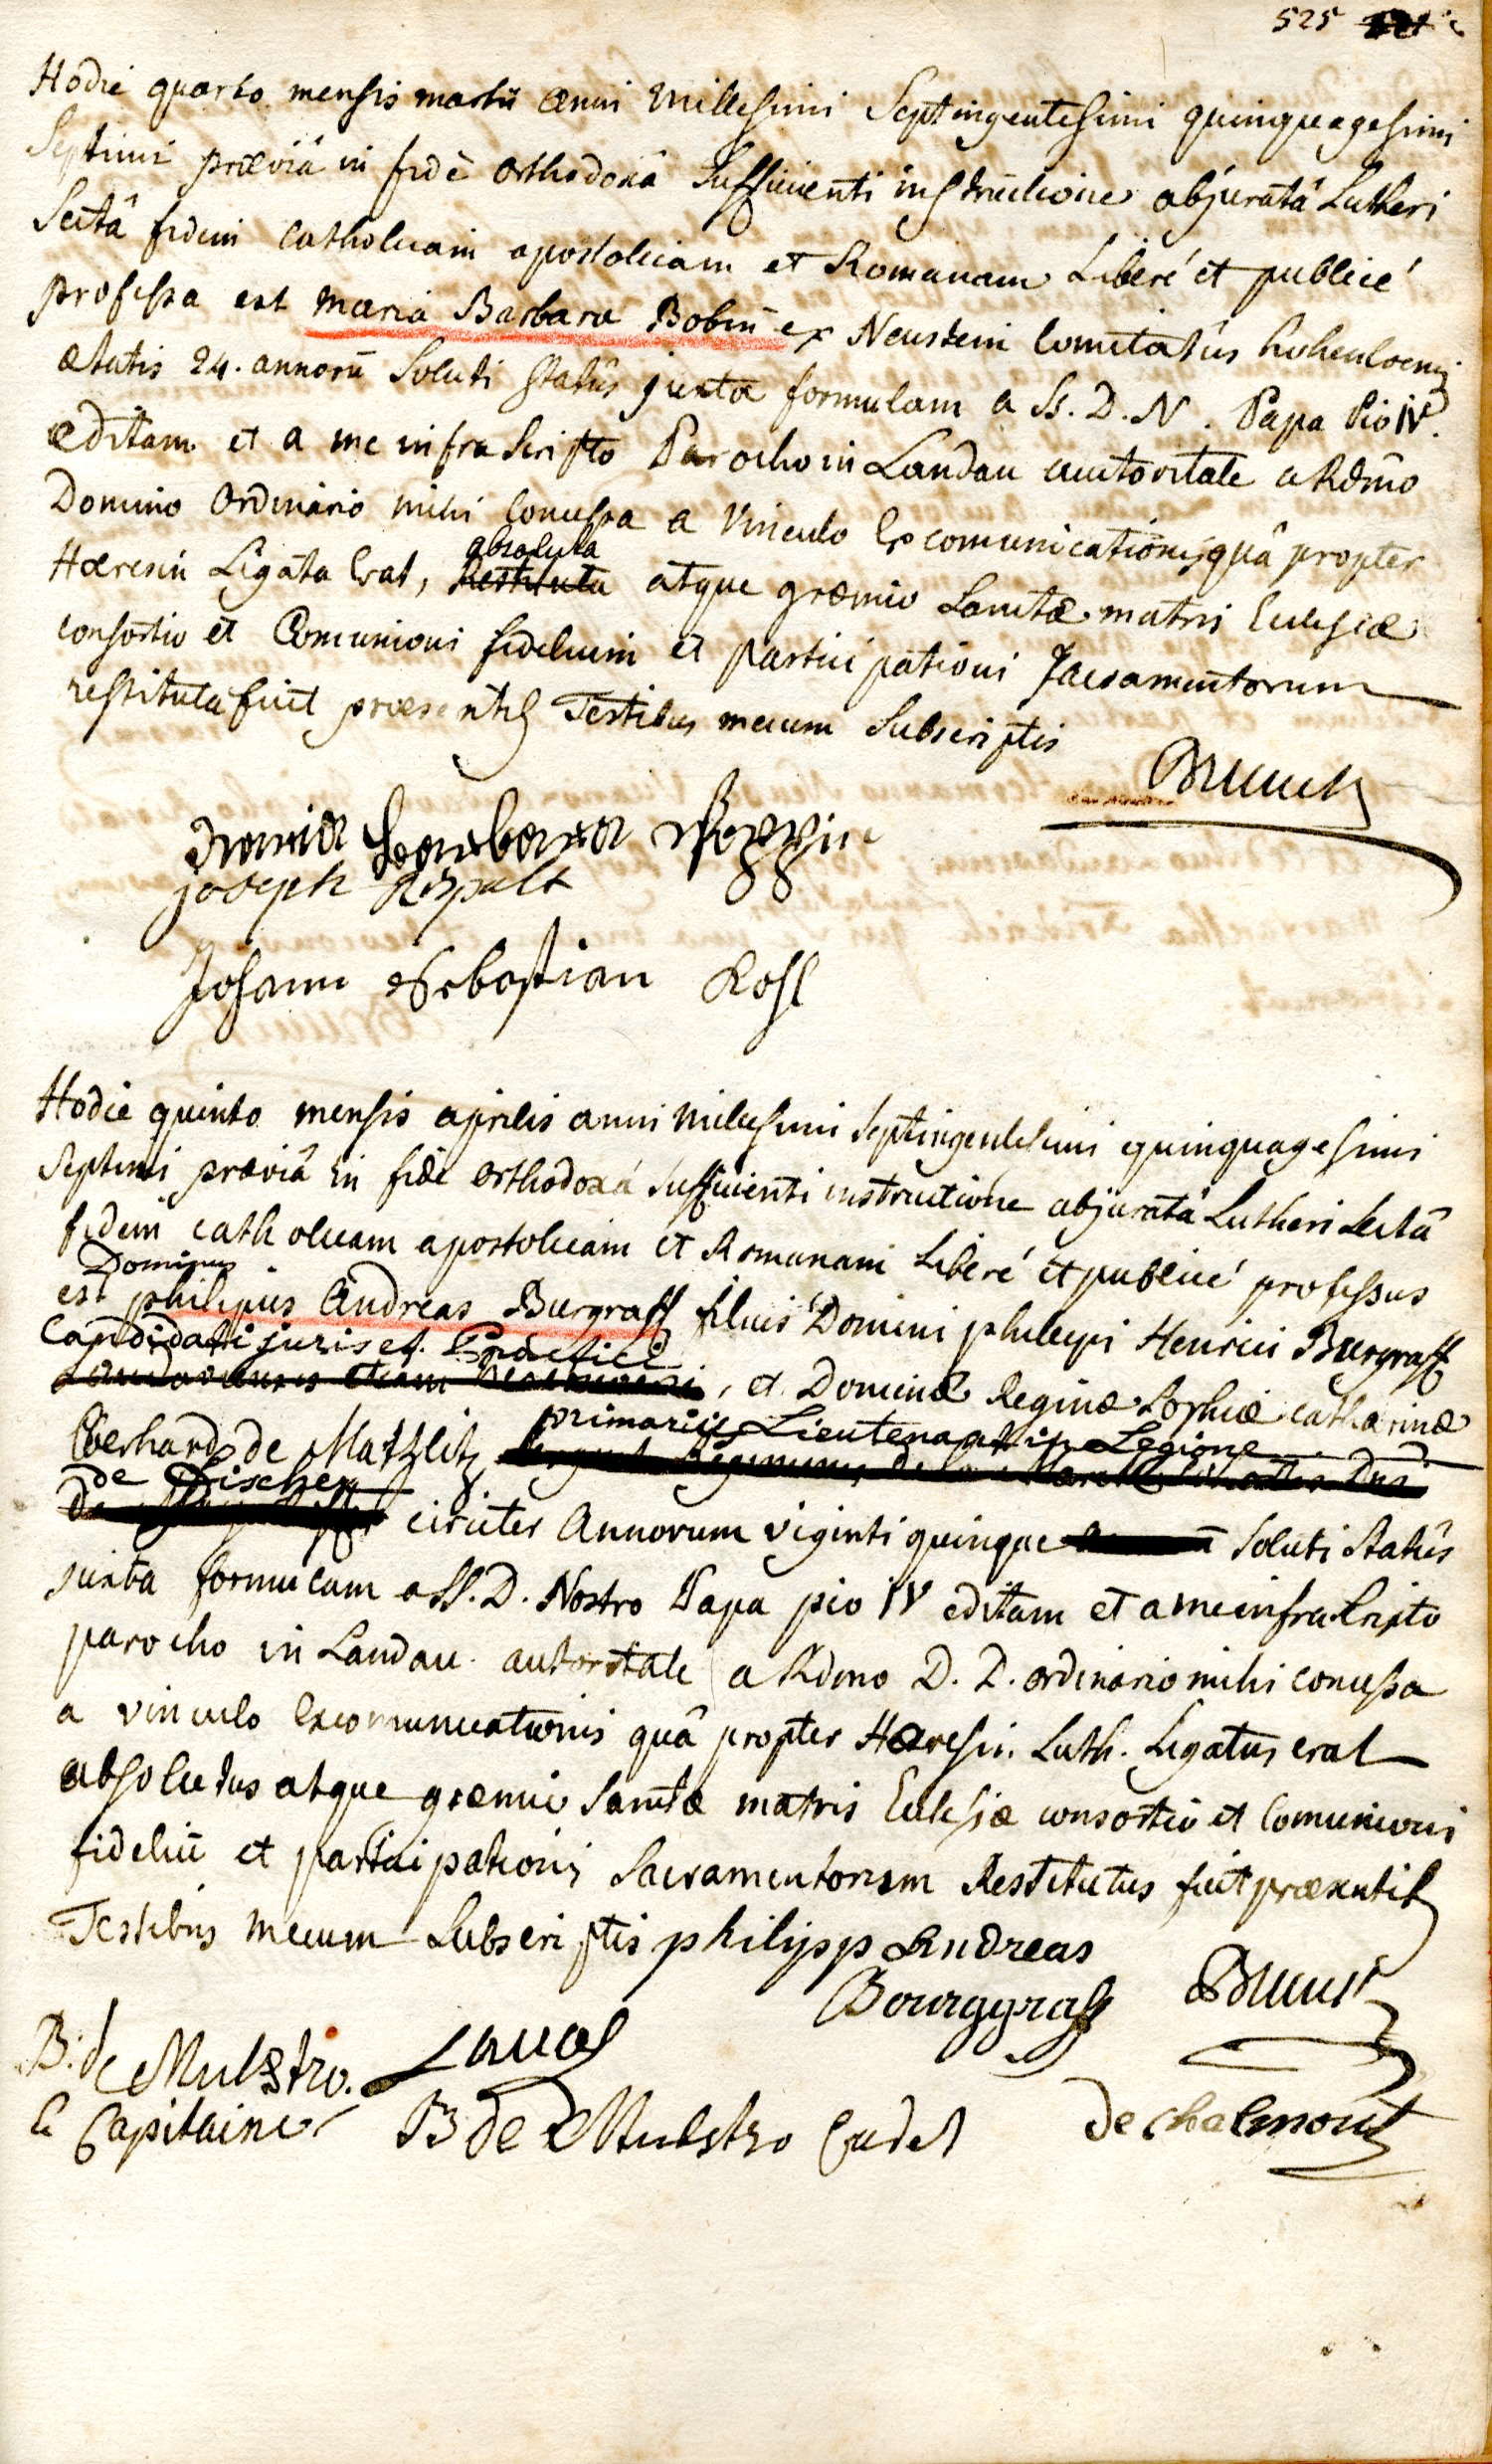 525
Hodie quarto mensis martii anni millesimi Septingentesimi quinquagesimi
Septimi præviâ in fide orthodoxâ Sufficienti instructione abjuratâ Lutheri
Sectâ fidem catholicam apostolicam et Romanam Liberé et publicé
professa est maria Barbara Bobin ex Neustein Comitatûs hohenloensis
ætatis 24. annorū Soluti statûs juxta formulam a SS. D. N. Papa Pio IV.
æditam et a me infra Scripto Parocho in Landau auctoritate a Rdmo
Domino Ordinario mihi Concessa a Vinculo Excomunicationis quâ propter
Hæresin Ligata Erat, absoluta
Restituta atque græmio Sanctæ matris Ecclesiæ
consortio et Comunioni fidelium et participationi Sacramentorum
restituta fuit præsentib Testibus mecum Subscriptis
Brunck
maria barbara
joseph
Johann Sebastian Kohl
Hodie quinto mensis aprilis anni millesimi Septingentesimi quinquagesimi
Septimi præviâ in fide orthodoxâ Sufficienti instructione abjuratâ Lutheri Sectâ
fidem catholicam apostolicam et Romanam Liberé et publicé professus
Dominus
est philipus Andreas Burgraff filius Domini philippi Henrici Burgraff
Candidati juris et Practici
, et Dominæ Reginæ Sophiæ catharinæ
Eberhard de Matzlitz primarii Lieutenant in Legione
de Fischer
circiter Annorum viginti quinque Soluti Statûs
juxta formulam a SS. D. Nostro Papa pio IV editam et a me infra Scripto
parocho in Landau autoritate a Rdmo D. D. ordinario mihi concessa
a vinculo Excomunicationis quâ propter Hæresin Luth. Ligatus erat
absolutus atque græmio Sanctæ matris Ecclesiæ consortio et Comunioni
fideliū et participationis Sacramentorum Restitutus fuit præsentib
Testibus mecum Subscriptis philipp Andreas
Bourggraff Brunck
B. de Mulstro.
le Capitaine B de Mulstro Cadet de chalmont